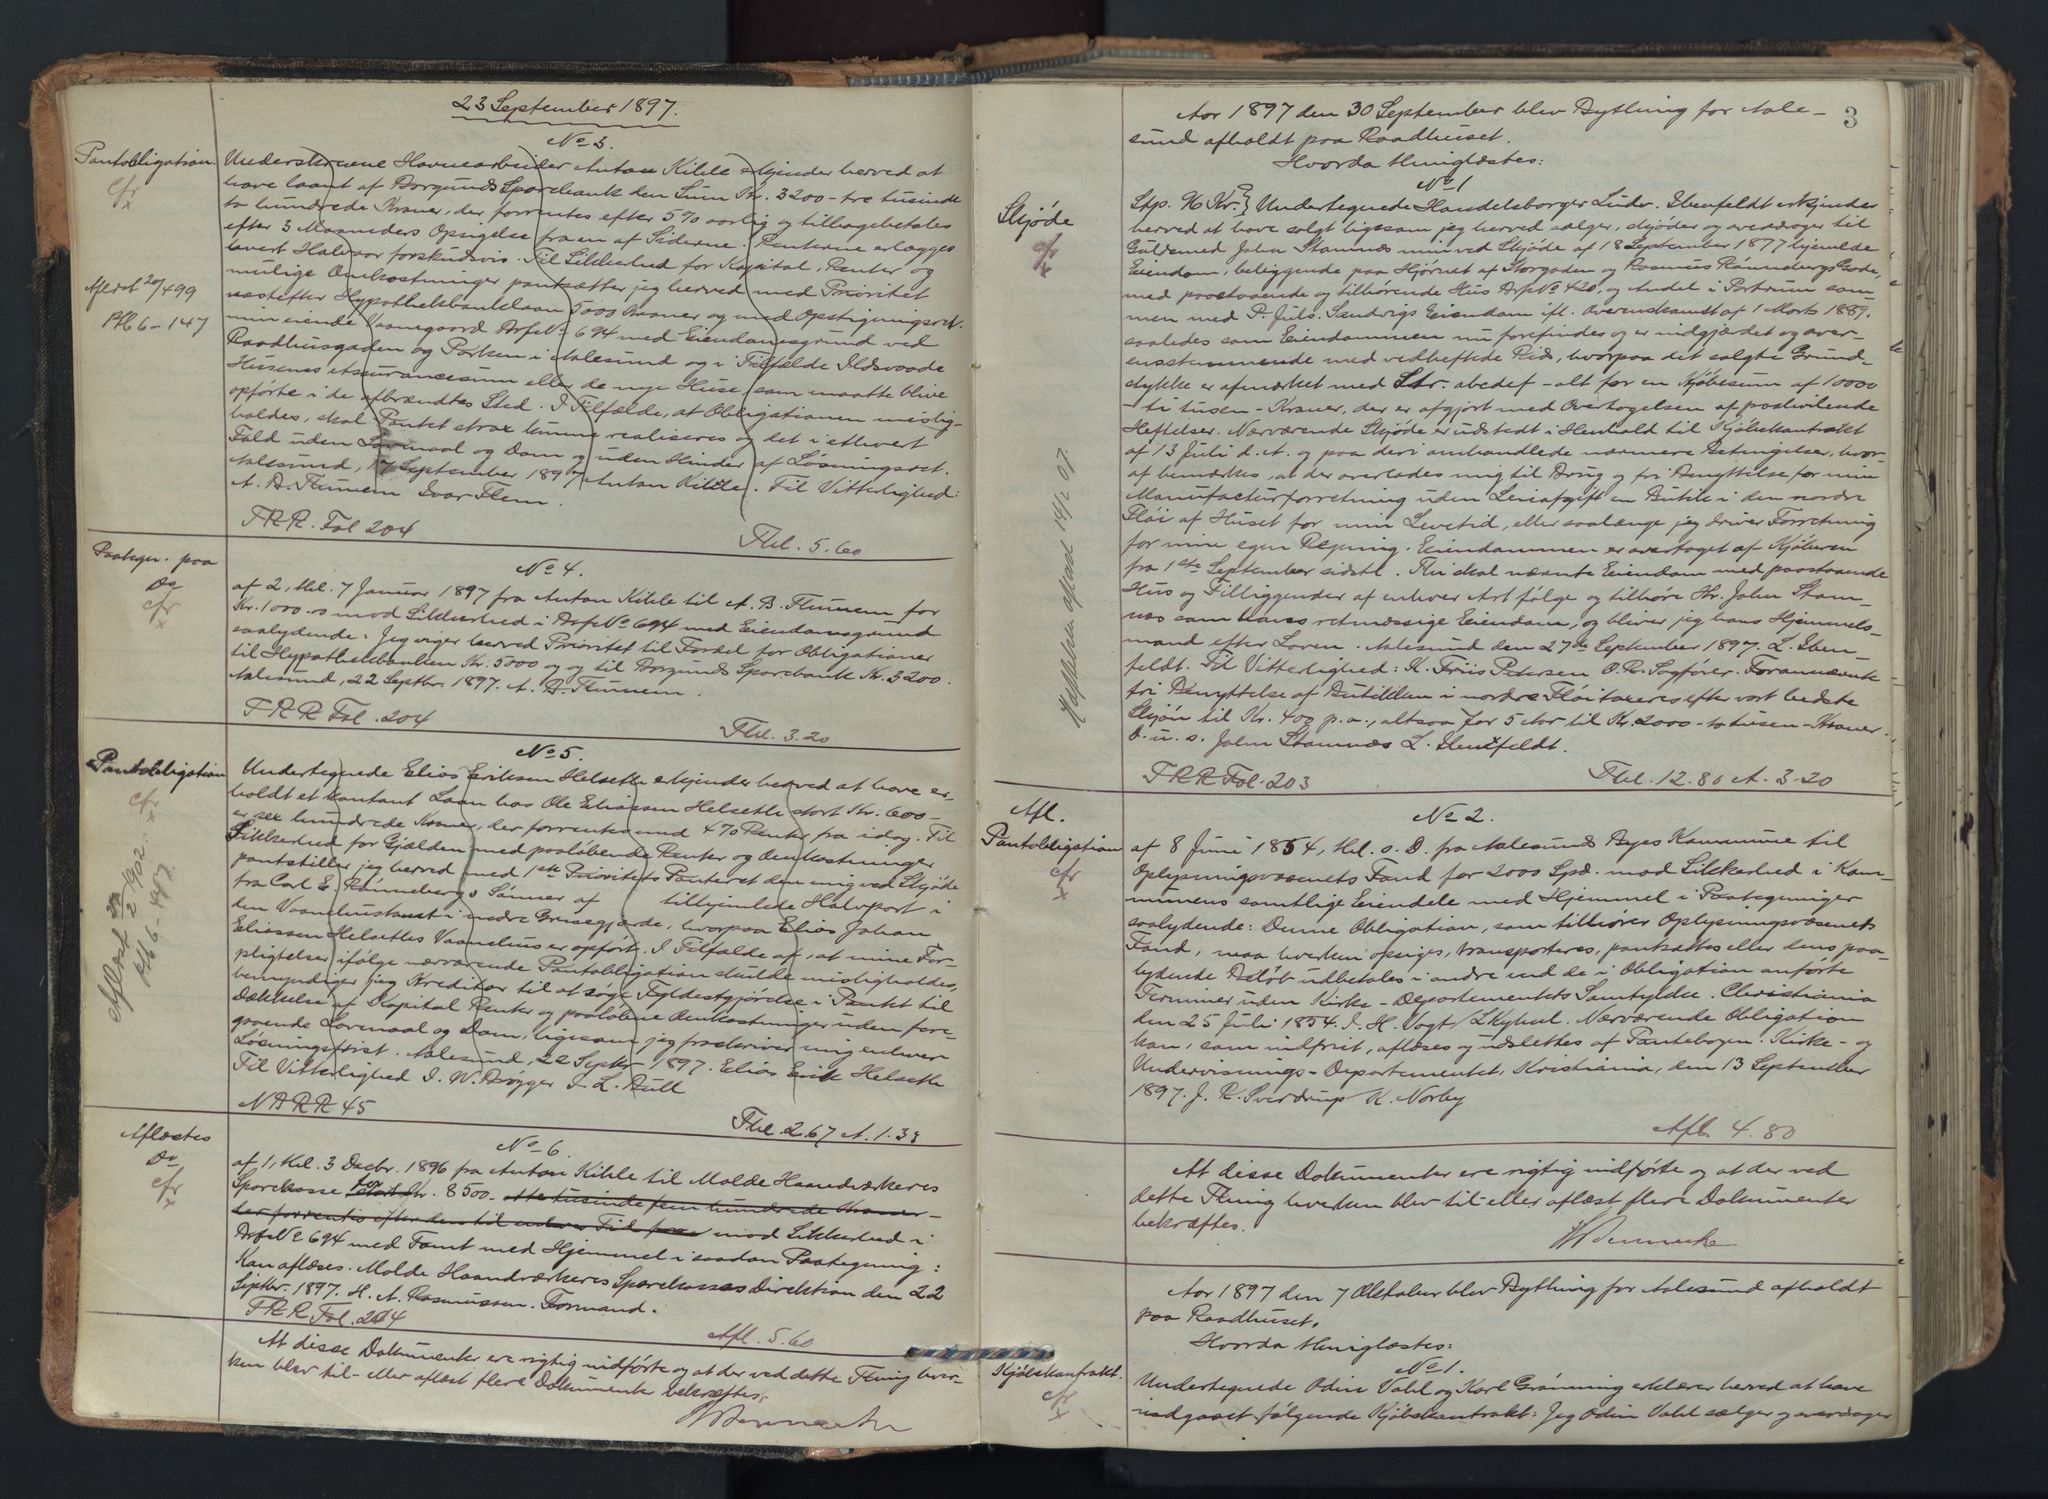 23 September 1897.
No 3.
Pantobligation.
cfr
x
Underskrevne Havnearbeider Anton Kihle erkjender herved at
have laant af Borgunds Sparebank den Sum Kr. 3200 - tre tusinde
to hundrede Kroner, der forrentes efter 5% aarlig og tilbagebetales
efter 3 Maaneders Opsigelse fra en af Siderne. Renterne erlægges
hvert Halvaar forskudsvis. Til Sikkerhed for Kapital, Renter og
mulige Omkostninger pantsætter jeg herved med Prioritet
Aflæst 20/4 99
Pb 6 - 147
næstefter Hypothekbanklaan 5000 Kroner og med Opstigningsret
min eiende Vaanegaard Brf No 694 med Eiendomsgrund ved
Raadhusgaden og Parken i Aalesund og i Tilfælde Ildsvaade
Husenes Assurancesum eller de nye Huse, som maatte blive
opførte i de afbrændtes Sted. I Tilfælde, at Obligationen mislig-
holdes, skal Pantet strax kunne realiseres og det i ethvert
Fald uden Lovmaal og Dom og uden Hinder af Løsningsret.
Aalesund, 17 September 1897 Anton Kihle. Til Vitterlighed:
A. B. Flunem Ivar Flem.
T R R. Fol 204
Thl. 5.60
Paategn. paa
Do
cfr
x
No 4.
af 2, thl. 7 Januar 1897 fra Anton Kihle til A. B. Flunem for
Kr. 1000.00 mod Sikkerhed i Brf No 694 med Eiendomsgrund
saalydende: Jeg viger herved Prioritet til Fordel for Obligationer
til Hypothekbanken Kr. 5000 og og til Borgunds Sparebank Kr. 3200.
Aalesund, 22 Septbr. 1897. A. B. Flunem.
T R R Fol. 204
Thl. 3.20
Pantobligation
cfr
x
No 5.
Undertegnede Elias Eriksen Helsethe erkjender herved at have er-
holdt et kontant Laan hos Ole Eliassen Helsethe stort Kr. 600 -
er sex hundrede Kroner, der forrentes med 4% Renter fra idag. Til
Sikkerhed for Gjælden med paaløbende Renter og Omkostninger
pantstiller jeg herved med 1ste Prioritets Panteret den mig ved Skjøde
fra Carl E. Rønnebergs Sønner af tilhjemlede Halvpart i
den Vaanehustomt i nedre Grisegjærde, hvorpaa Elias Johan
Aflæst 2/9 02.
Pb 6 - 447
Eliassen Helsethes Vaanehus er opført. I Tilfælde af, at mine For-
pligtelser ifølge nærværende Pantobligation skulde misligholdes,
bemyndiger jeg Kreditor til at søge Fyldestgjørelse i Pantet til
Dækkelse af Kapital Renter og paaløbne Omkostninger uden fore-
gaaende Lovmaal og Dom, ligesom jeg fraskriver mig enhver
Løsningsfrist. Aalesund, 22 Septbr 1897. Elias Erik Helsethe
Til Vitterlighed J. W. Brøgger J. L. Bull
N B R R 45
Thl. 2.67 A. 1.33
Aflæstes
Do
cfr
x
No 6.
af 1, thl. 3 Decbr. 1896 fra Anton Kihle til Molde Haandværkeres
Sparekasse for stort Kr. 8500 - otte tusinde fem hundrede Kroner -
der forrentes efter den til enhver Tid mod Sikkerhed i
Brf No 694 med Tomt med Hjemmel i saadan Paategning:
Kan aflæses. Molde Haandværkeres Sparekasses Direktion den 22
Septbr. 1897. H. A. Rasmussen. Formand.
T R R Fol. 204
Afl. 5.60
At disse Dokumenter ere rigtig indførte og at der ved dette Thing hver-
ken blev til- eller aflæst flere Dokumenter bekræftes.
3
Aar 1897 den 30 September blev Bything for Aale-
sund afholdt paa Raadhuset.
Hvorda thinglæstes:
No 1
Skjøde
cfr
x
Stp. 26 Kr. } Undertegnede Handelsborger Ludv. Ibenfeldt erkjender
herved at have solgt ligesom jeg herved sælger, skjøder og overdrager til
Guldsmed John Stamnæs min ved Skjøde af 18 September 1877 hjemlede
Eiendom, beliggende paa Hjørnet af Storgaden og Rasmus Rønnebergs Gade,
med paastaaende og tilhørende Hus Brf No 420, og Andel i Portrum sam-
men med P. Juls. Sandvigs Eiendom ifl. Overenskomst af 1 Marts 1887.
saaledes som Eiendommen nu forefindes og er indgjærdet og over-
ensstemmende med vedheftede Rids, hvorpaa det solgte Grund-
stykke er afmærket med Litr. abcdef - alt for en Kjøbesum af 10000
- ti tusen - Kroner, der er afgjort med Overtagelsen af paahvilende
Heftelser. Nærværende Skjøde er udstedt i Henhold til Kjøbekontrakt
af 13 Juli d. A. og paa deri omhandlede nærmere Betingelser, hvor-
af bemærkes, at der overlades mig til Brug og fri Benyttelse for min
Manufacturforretning uden Leieafgift en Butik i den nordre
Fløi af Huset for min Levetid, eller saalænge jeg driver Forretning
for min egen Regning. Eiendommen er overtaget af Kjøberen
fra 1ste September sidstl. Thi skal nævnte Eiendom med paastaaende
Hus og Tilliggender af enhver Art følge og tilhøre Hr. John Stam-
næs som hans retmæssige Eiendom, og bliver jeg hans Hjemmels-
mand efter Loven. Aalesund den 27de September 1897. L. Iben-
feldt. Til Vitterlighed: K. Friis Petersen O. R. Sagfører. Forannævnte
fri Benyttelse af Butikken i nordre Fløi taxeres efter vort bedste
Skjøn til Kr. 400 p. a., altsaa for 5 Aar til Kr. 2000 - to tusen - Kroner.
D. u. s. John Stamnæs L. Ibenfeldt.
Heftelsen aflæst 14/2 07.
T R R Fol. 203
Thl. 12.80 A. 3.20
Afl.
Pantobligation
cfr
x
No 2.
af 8 Juni 1854, thl. s. D. fra Aalesunds Byes Kommune til
Oplysningsvæsenets Fond for 2000 Spd. mod Sikkerhed i Kom-
munens samtlige Eiendele med Hjemmel i Paategninger
saalydende: Denne Obligation, som tilhører Oplysningsvæsenets
Fond, maa hverken opsiges, transporteres, pantsættes eller dens paa-
lydende Beløb udbetales i andre end de i Obligation anførte
Terminer uden Kirke-Departementets Samtykke. Christiania
den 25 Juli 1854. J. H. Vogt / Nærværende Obligation
kan, som indfriet, aflæses og udslettes af Pantebogen. Kirke- og
Undervisnings-Departementet, Kristiania, den 13 September
1897. J. R. Sverdrup K. Norby
Afl. 4.80
At disse Dokumenter ere rigtig indførte og at der ved
dette Thing hverken blev til- eller aflæst flere Dokumenter
bekræftes.
Aar 1897 den 7 Oktober blev Bything for Aalesund afholdt
paa Raadhuset.
Hvorda thinglæstes:
No 1.
Kjøbekontrakt.
cfr
x
Undertegnede Odin Vahl og Karl Grønning erklærer herved at have
indgaaet følgende Kjøbekontrakt: Jeg Odin Vahl sælger og overdrager